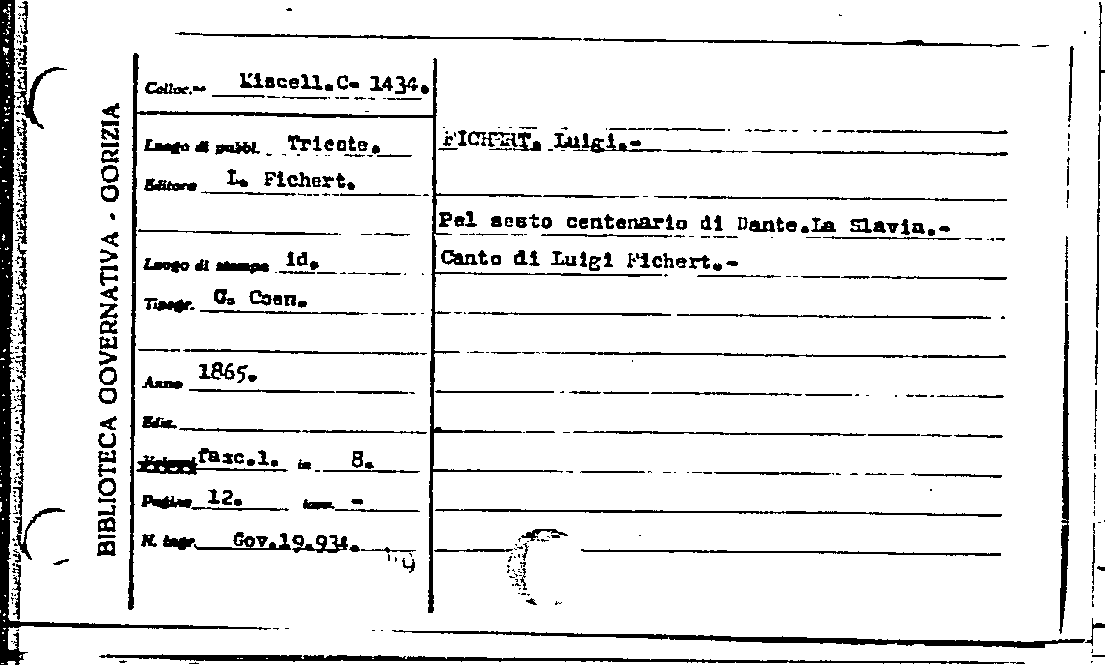 BIBLIOTECA GOVERNATIVA - GORIZIA
Colloc.ne Miscell.C- 1434.
Luogo di pubbl. Trieste.
Editore L. Fichert.
Luogo di stampa id.
Tipogr. G. Coen.
Anno 1865.
Ediz.
fasc.1. in 8.
Pagine 12. -
N. ingr. Gov.19.934.
FICHERT. Luigi.-
Pel sesto centenario di Dante.La Slavia.-
Canto di Luigi Fichert.-